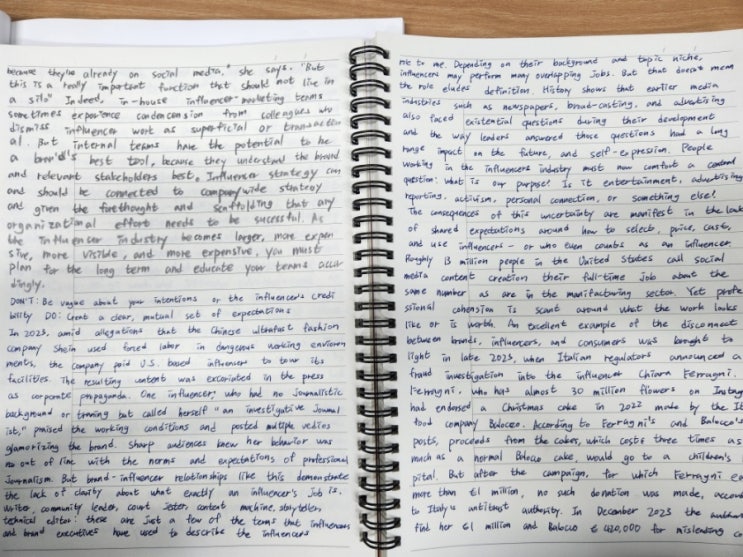 because they're already on social media," she says. "But
this is a really important function that should not live in
a silo" Indeed, in-house influencer-marketing terms
sometimes experience condencension from colleagues who
dismiss influencer work as superficial or transaction
al. But internal teams have the potential to be
a brand's best tool, because they understand the brand
and relevant stakeholders best. Influenser strategy can
and should be connected to companywide strategy
and given the forethought and scaffolding that any
organizational effort needs to be sucessful. As
the influenser industry becomes larger, more expen
sive, more visible, and more expensive, you must
plan for the long term and educate your teams accor
dingly.
DON'T: Be vague about your intentions or the influencer's credi
bility DO: Creat a clear, mutual set of expectations
In 2023, amid allegations that the Chinese ultrafast fashion
company Shein used forced labor in dangerous working envieron
ments, the company paid U.S. based influencers to tour its
facilities. The resulting content was excoriated in the press
as corporate propaganda. One influencer, who had no Journalistic
background or traning but called herself "an investigative Journal
ist," praised the working conditions and posted multiple vedios
glamorizing the brand. Sharp audiences knew her behavior was
out of line with the norms and expectations of professional
Journalism. But brand-influencer relationships like this demonstrate
the lack of clarity about what exactly an influencer's Job is.
Writer, community leader, court Jester, content machine, storyteller,
technical editor: these are Just a few of the terms that influencers
and brand executives have used to describe the influencers
role to me. Depending on their background and topic niche,
influencers may perform many overlapping Jobs. But that doesn't mean
the role eludes definition. History shows that earlier media
industries such as newspapers, broad-casting, and advertising
also faced existential questions during their development
and the way leaders answered those questions had a long
range impact on the future, and self-expression. People
working in the influencers industry must now comfort a central
question: what is our purpose? Is it entertainment, advertising
reporting, activism, personal connection, or something else?
The consequences of this uncertainty are manifest in the lack
of shared expectations around how to select, price, costs,
and use influencers - or who even counts as an influencer.
Roughly 13 million people in the United States call social
media content creation their full-time job about the
same number as are in the manifacturing sector. Yet profe
ssional cohension is scant around what the work looks
like or is worth. An excellent example of the disconnect
between brands, influencers, and consumers was brought to
light in late 2023, when Italian regulators announced a
fraud investigation into the influencer Chiara Ferragni.
Ferragni, who has almost 30 million flowers on Instag
had endorsed a Christmas cake in 2022 made by the It
food company Balocco. According to Ferragni's and Balocco's
posts, proceeds from the cakes, which costs three times as
much as a normal Baloco cake, would go to a children's
pital. But after the campaign, for which Ferragni ea
more than €1 million, no such donation was made, accord
to Italy's antitrust authority. In December 2023 the
find her €1 million and Balocco €420,000 for misleading co